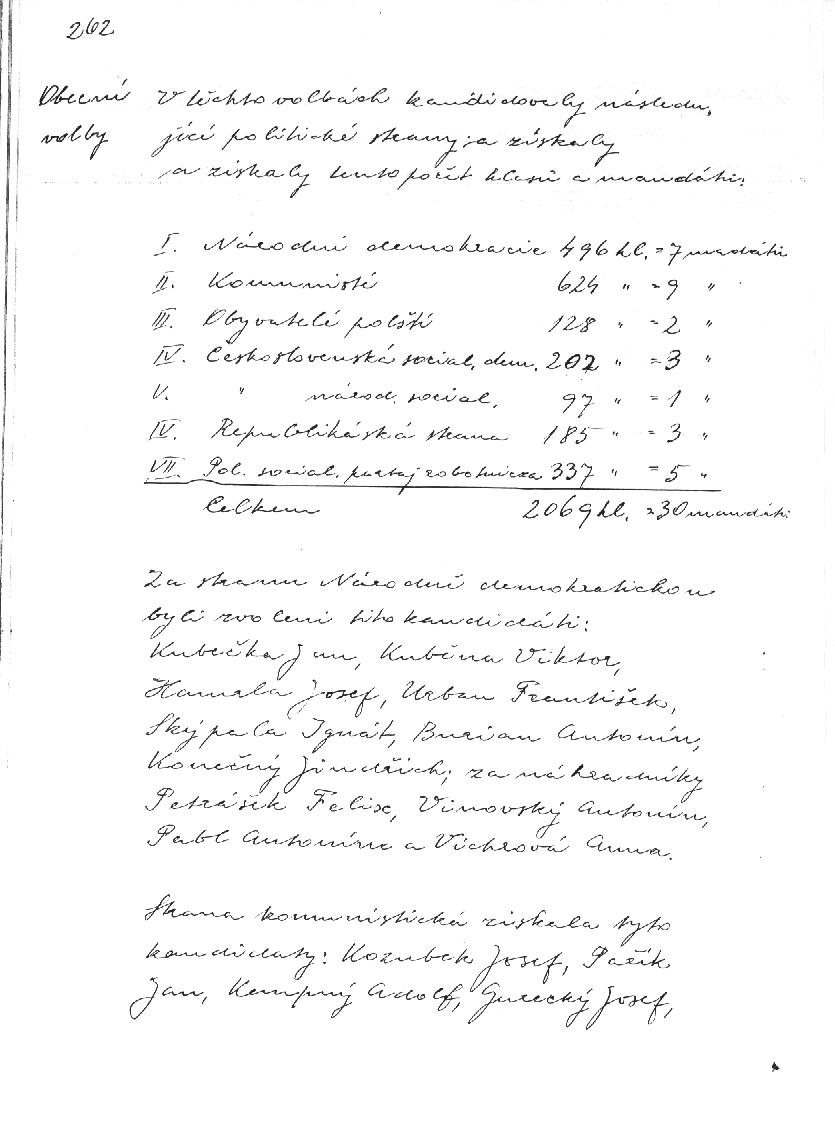 262
Obecní volby
V těchto volbách kandidovaly následu,
jící politické strany: a získaly
a získaly tento počet hlasů a mandátů:
I. Národní demokracie 496 hl. = 7 madátů
II. Komunisté 624 " = 9 "
III. Obyvatelé polští 128 " = 2 "
IV. Československá social. dem. 202 " = 3 "
V. " národ. social. 97 " = 1 "
IV. Republikáská strana 185 " = 3 "
VII. Pol. social. partaj robotnicza 337 " = 5 "
Celkem 2069 hl. = 30 mandátů
Za stranu Národně demokratickou
byli zvoleni tito kandidáti:
Kubečka Jan, Kuběna Viktor,
Hamala Josef, Urban František,
Skýpala Ignát, Burian Antonín,
Konečný Jindřich; za náhradníky
Petrášek Felix, Vinovský Antonín,
Pabl Antonín a Víchrová Anna.
Strana komunistická získala tyto
kandidaty: Kozubek Josef, Pačik
Jan, Kempný Adolf, Gurecký Josef,